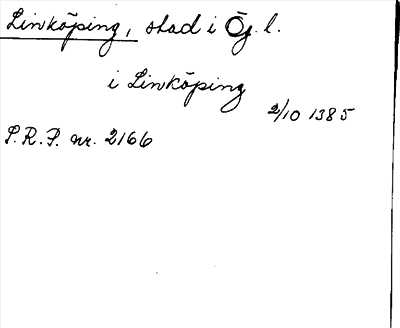 Linköping, stad i Ög. l.
i Linköping
2/10 1385
S.R.P. nr. 2166